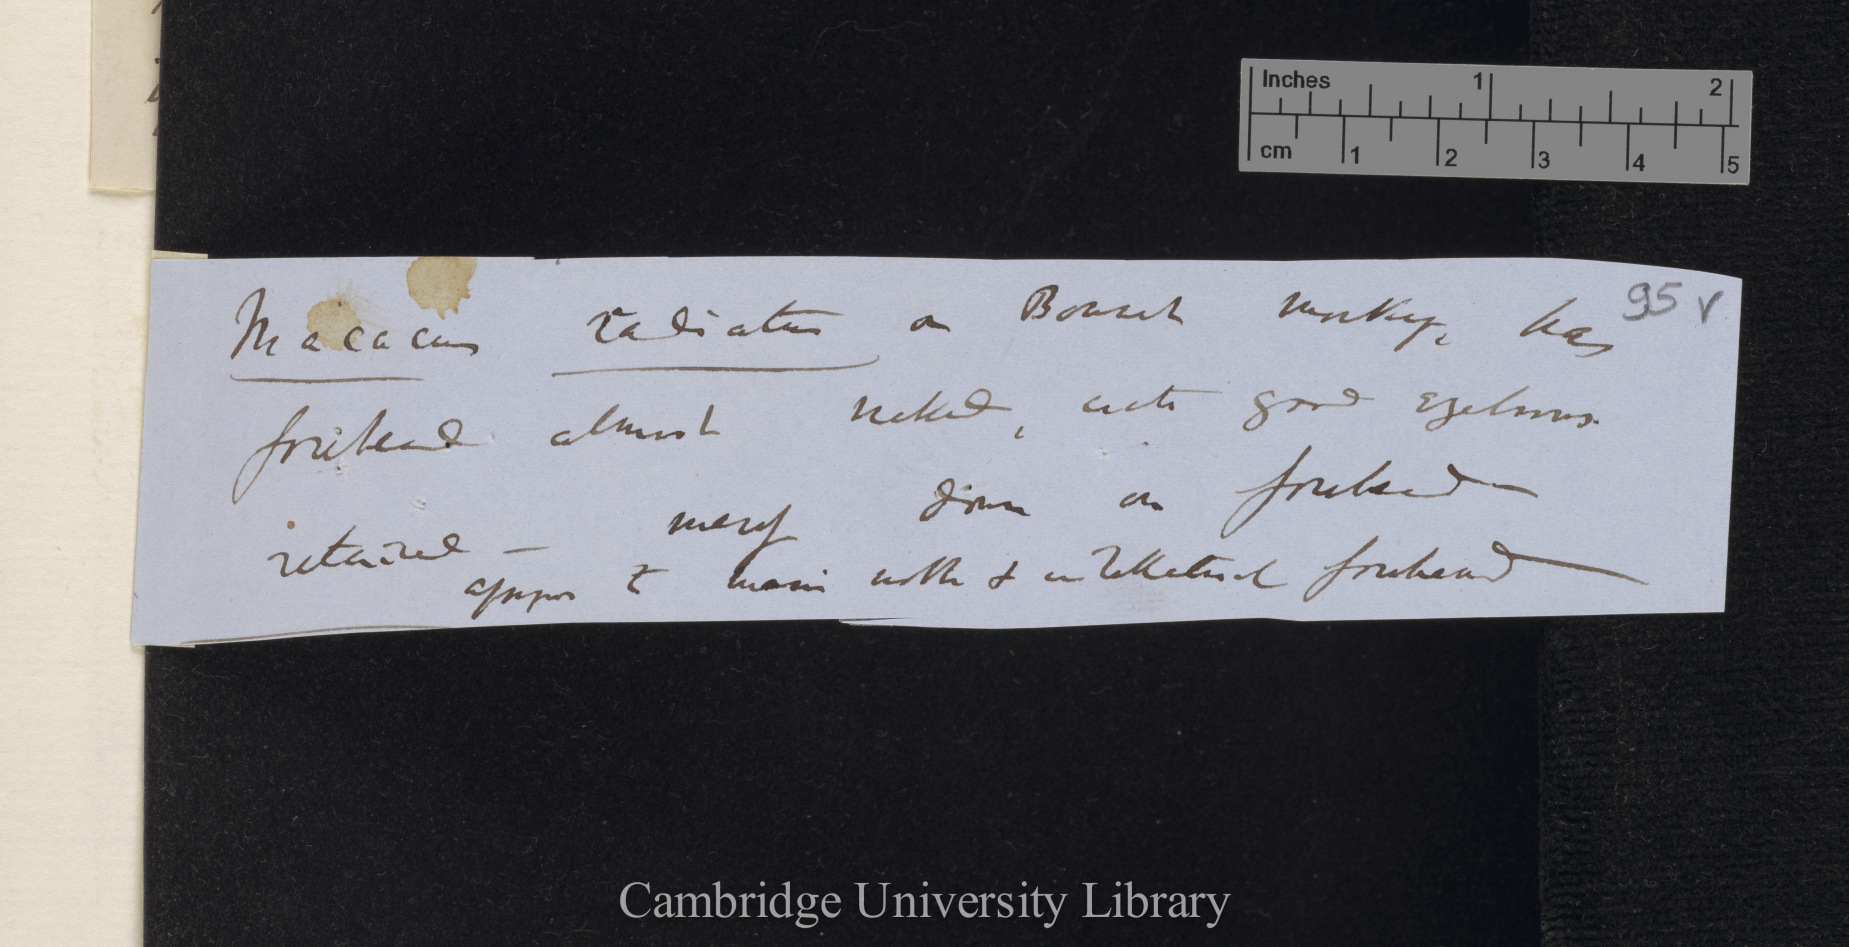 Inches 1 2
cm 1 2 3 4 5
95 v
Macacus radiatus or Bonnet monkey, has
forehead almost naked, with good eyebrows.
retained — merely down on forehead —
appos to & intellectual forehead —
Cambridge University Library